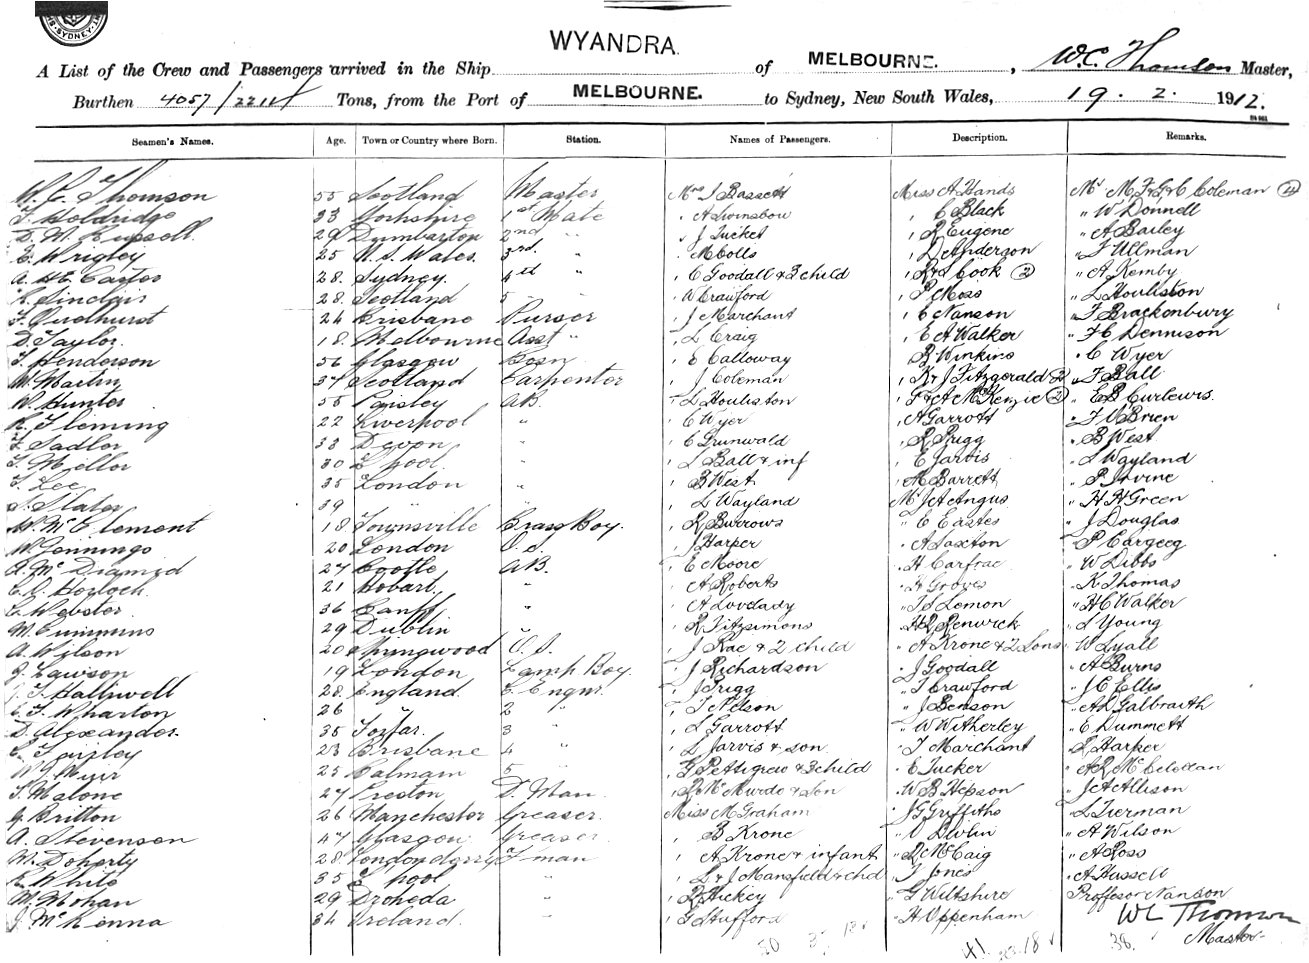 SYDNEY
WYANDRA.
A List of the Crew and Passengers arrived in the Ship WYANDRA. of MELBOURNE. , W.C. Thomson Master,
Burthen 4057/2211 Tons, from the Port of MELBOURNE. to Sydney, New South Wales, 19 . 2 . 1912.
Seamen's Names. Age. Town or Country where Born. Station. Names of Passengers. Description. Remarks.
W. C. Thomson 55 Scotland Master Mrs J Bassett Miss A Hands Mr M, F, G & C Coleman (4)
T. Holdridge 33 Yorkshire 1st Mate " A Swinsbow " C Black " W Donnell
D. W. Russell 29 Dumbarton 2nd " " J Tucket " R Eugene " A Bailey
C. Wrigley 25 N. S. Wales 3rd. " " M Colls " D Anderson " F Ullman
A. H. E. Carter 28. Sydney. 4th " " C Goodall & 3 child " R & S Cook (2) " A Kemby
R. Sinclair 28. Scotland 5 " " W Crawford " P Moss " L Houliston
24 Brisbane Purser " J Marchant " C Nanson " F Brackenbury
D. Taylor. 18. Melbourne Asst " " L Craig " E A Walker " F C Dennison
T. Henderson 56 Glasgow Bosn " E Calloway R Winkins " C Wyer
W. Martin 37 Scotland Carpenter " J Coleman " K & J Fitzgerald 2 " F Ball
W. Hunter 55 Paisley A.B. " L Houliston " F & A McKenzie (2) " E B Curlewis.
R. Fleming 22 Liverpool " " C Wyer " A Garrott " F O'Brien
F. Sadler 33 Devon " " C Grunwald " R Prigg " B West
T. Mellor 30 L'pool. " " L Ball & inf " E Jarvis " L Wayland
T. Lee 35 London " " B West " M Barrett " P Irvine
S. Slater 39 " " " L Wayland Mr J A Angus " H H Green
W. McClement 18 Townsville Brass Boy. " R Burrows " E Eastes " J Douglas
W. Jennings 20 London O.S. " J Harper " A Saxton " P Cargeeg
A. McDiamid 27 Bootle A.B. " E Moore " H Carfrae " W Dibbs
C. J. Horlock 21 Hobart " " A Roberts " H Groves " K Thomas
C. Webster 36 Banff " " A Lovelady " T S Lemon " H C Walker
M. Cummins 29 Dublin " " R Fitzsimons " H R Renwick " L Young
A. Wilson 20 Springwood O.S. " J Rae & 2 child " A Krone & 2 Sons " W Lyall
J. Lawson 19 London Lamp Boy. " J Richardson " J Goodall " A Burns
J. T. Halliwell 28. England. C. Engnr. " J Prigg " T Crawford " J C Ellis
C. F. Wharton 26 " 2 " " T Nelson " J Benson " A D Galbraith
D. Alexander. 35 Forfar. 3 " L Garrott " W Witherley " E Dummett
23 Brisbane 4 " " L Jarvis & son " T Marchant " R Harker
W. Muir 25 Balmain 5 " " G Pettigrew & 3 child " E Tucker " A R McClellan
T. Malone 27 Preston D. Man " R McMurde & Son " W B Hepson " J A Allison
G. Britton 26 Manchester Greaser. Miss M Graham " J G Griffiths " L Tierman
A. Stevenson 47 Glasgow Greaser " B Krone " Devlin " A Wilson
W. Doherty 28 Londonderry F'man " A Krone & infant " R McCaig " A Ross
R. White 35 L'pool " " L & J Mansfield & chd " T Jones " A Hassell
M. Mohan 29 Drogheda " " R Hickey " G Wiltshire Proffesor Nanson
J. McKenna 34 Ireland. " " G Stufford " H Oppenham
WC Thomson
Master
80 41 18 38